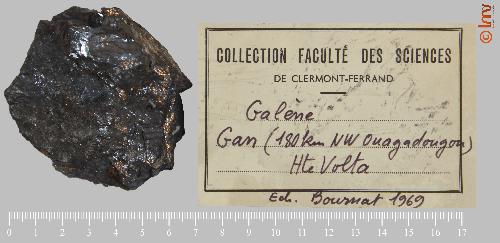 COLLECTION FACULTÉ DES SCIENCES
DE CLERMONT-FERRAND
Galène
Gan (180 km NW Ouagadougou)
Hte Volta
Ech. Bournat 1969
0 1 2 3 4 5 6 7 8 9 10 11 12 13 14 15 16 17